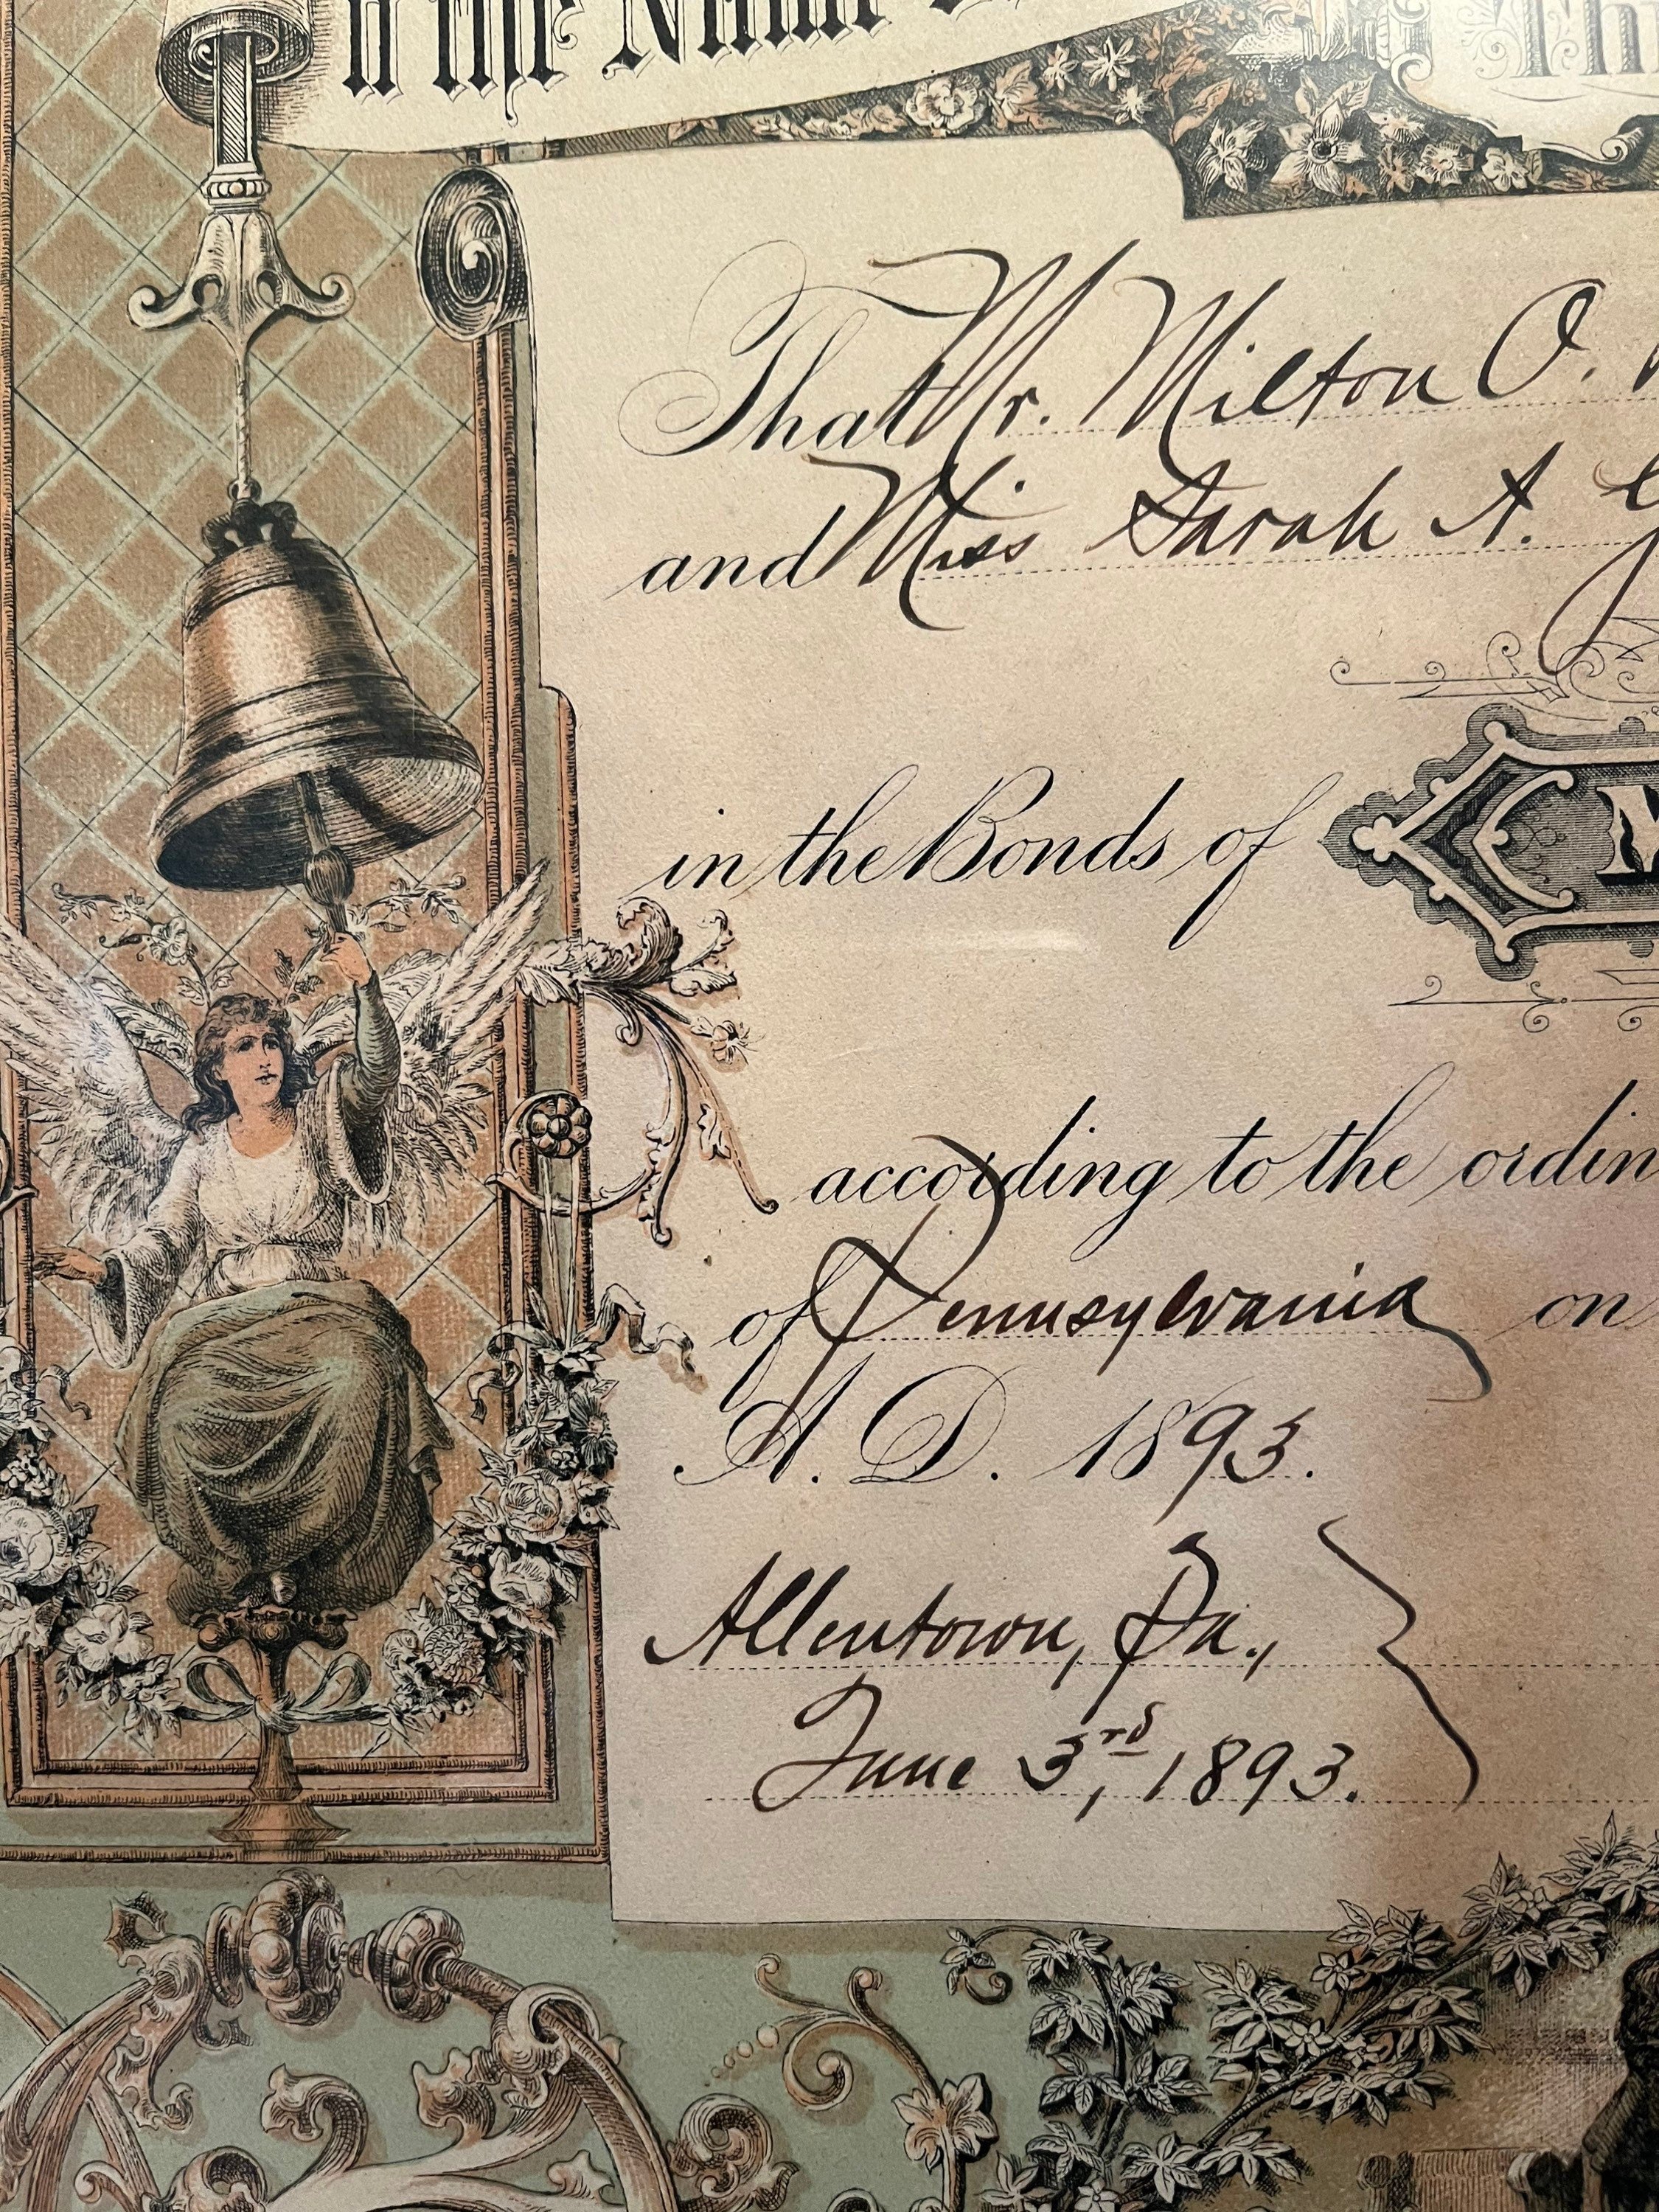 the Name
That Mr. Milton O.
and Miss Sarah A.
in the Bonds of
according to the
of Pennsylvania on
A. D. 1893.
Allentown, Pa.,
June 3rd, 1893.